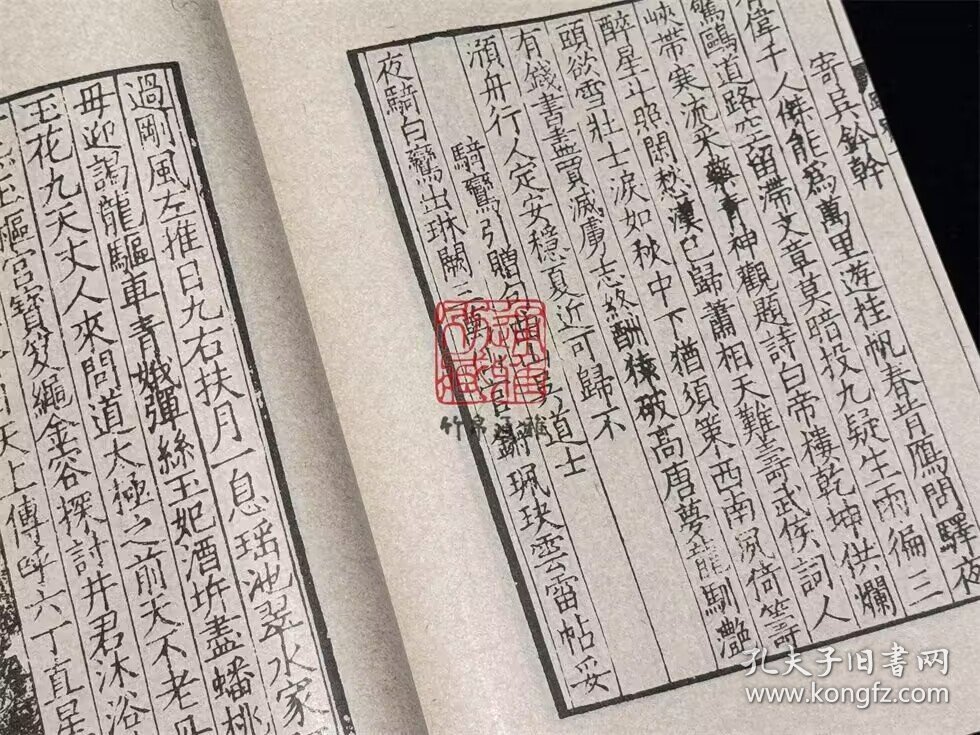 寄兵鈐幹
偉千人傑能為萬里遊桂帆春昔鴈問驛夜
鷗道路空留滯文章莫暗投九疑生雨徧三
峽帶寒流采藥青神觀題詩白帝樓乾坤供爛
醉星斗照閑愁漢已歸蕭相天難壽武侯詞人
頭欲雪壯士淚如秋中下猶須策西南夙倚籌
有錢書盡買滅虜志終酬猿破高唐夢龍馴灩
澦舟行人定安穩夏近可歸不
騎鸞引贈山道士
夜騎白鸞出琳闕三萬仙官鏘珮玦雲雷帖妥
過剛風左推日九右扶月一息瑤池翠水家
毋迎謁龍驅車青娥彈絲玉妃酒坼盡蟠桃
玉花九天丈人來問道太極之前天不老
玉樞宮寶笈編金容探討井君沐浴
天上傳呼六丁直星
孔夫子旧书网
www.kongfz.com